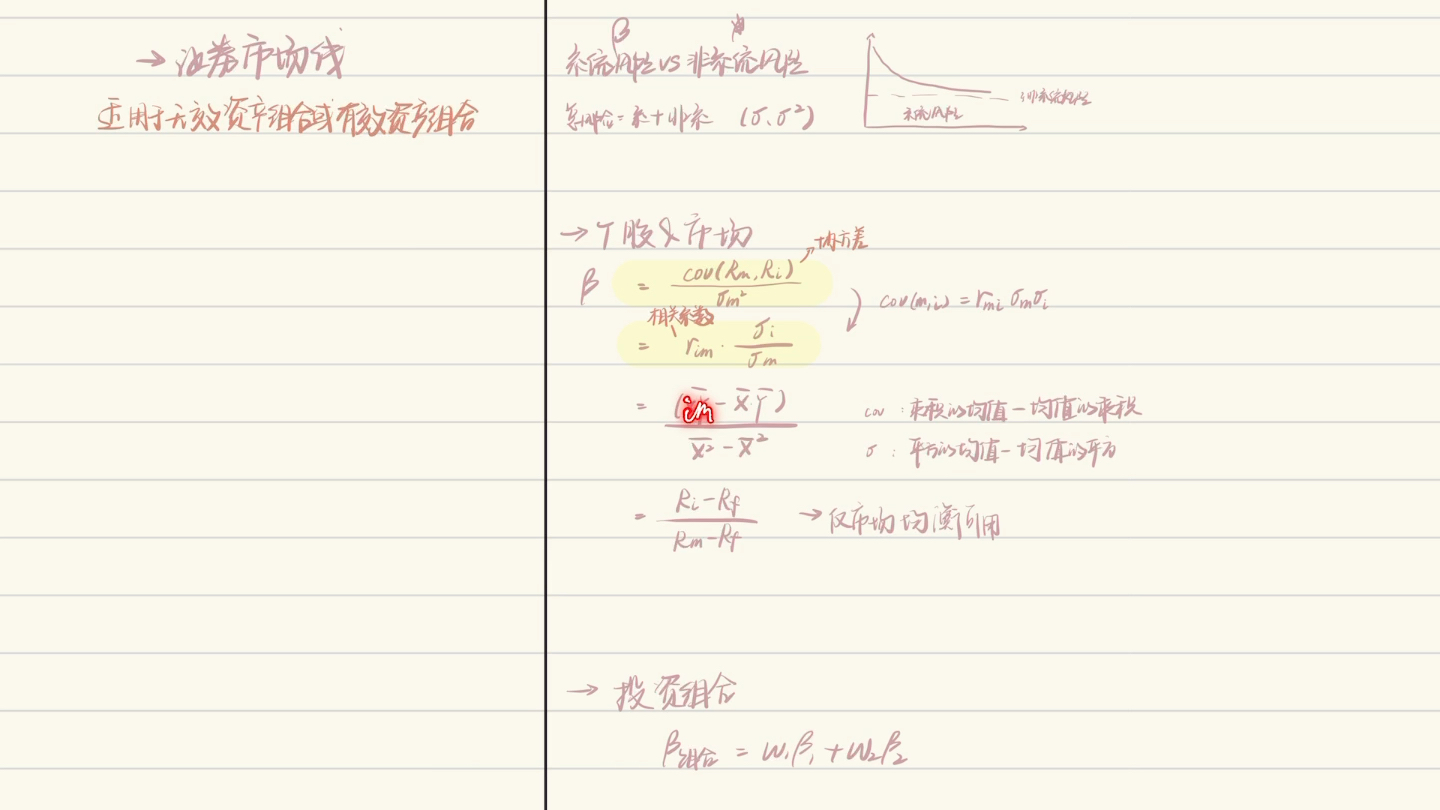 → 证券市场线
适用于无效资产组合或有效资产组合
β 非
系统风险 vs 非系统风险
总组合 = 系 + 非系 (σ、σ²)
非系统风险
系统风险
→ 个股 & 市场
→ 均方差
β = cov(Rm, Ri) / σm²
cov(m,i) = rmi σm σi
相关系数
= rim · σi / σm
im
= ( - X̄ Ȳ ) / X̄² - X̄²
cov : 乘积的均值 - 均值的乘积
σ : 平方的均值 - 均值的平方
= Ri - Rf / Rm - Rf → 仅市场均衡可用
→ 投资组合
β组合 = W₁β₁ + W₂β₂